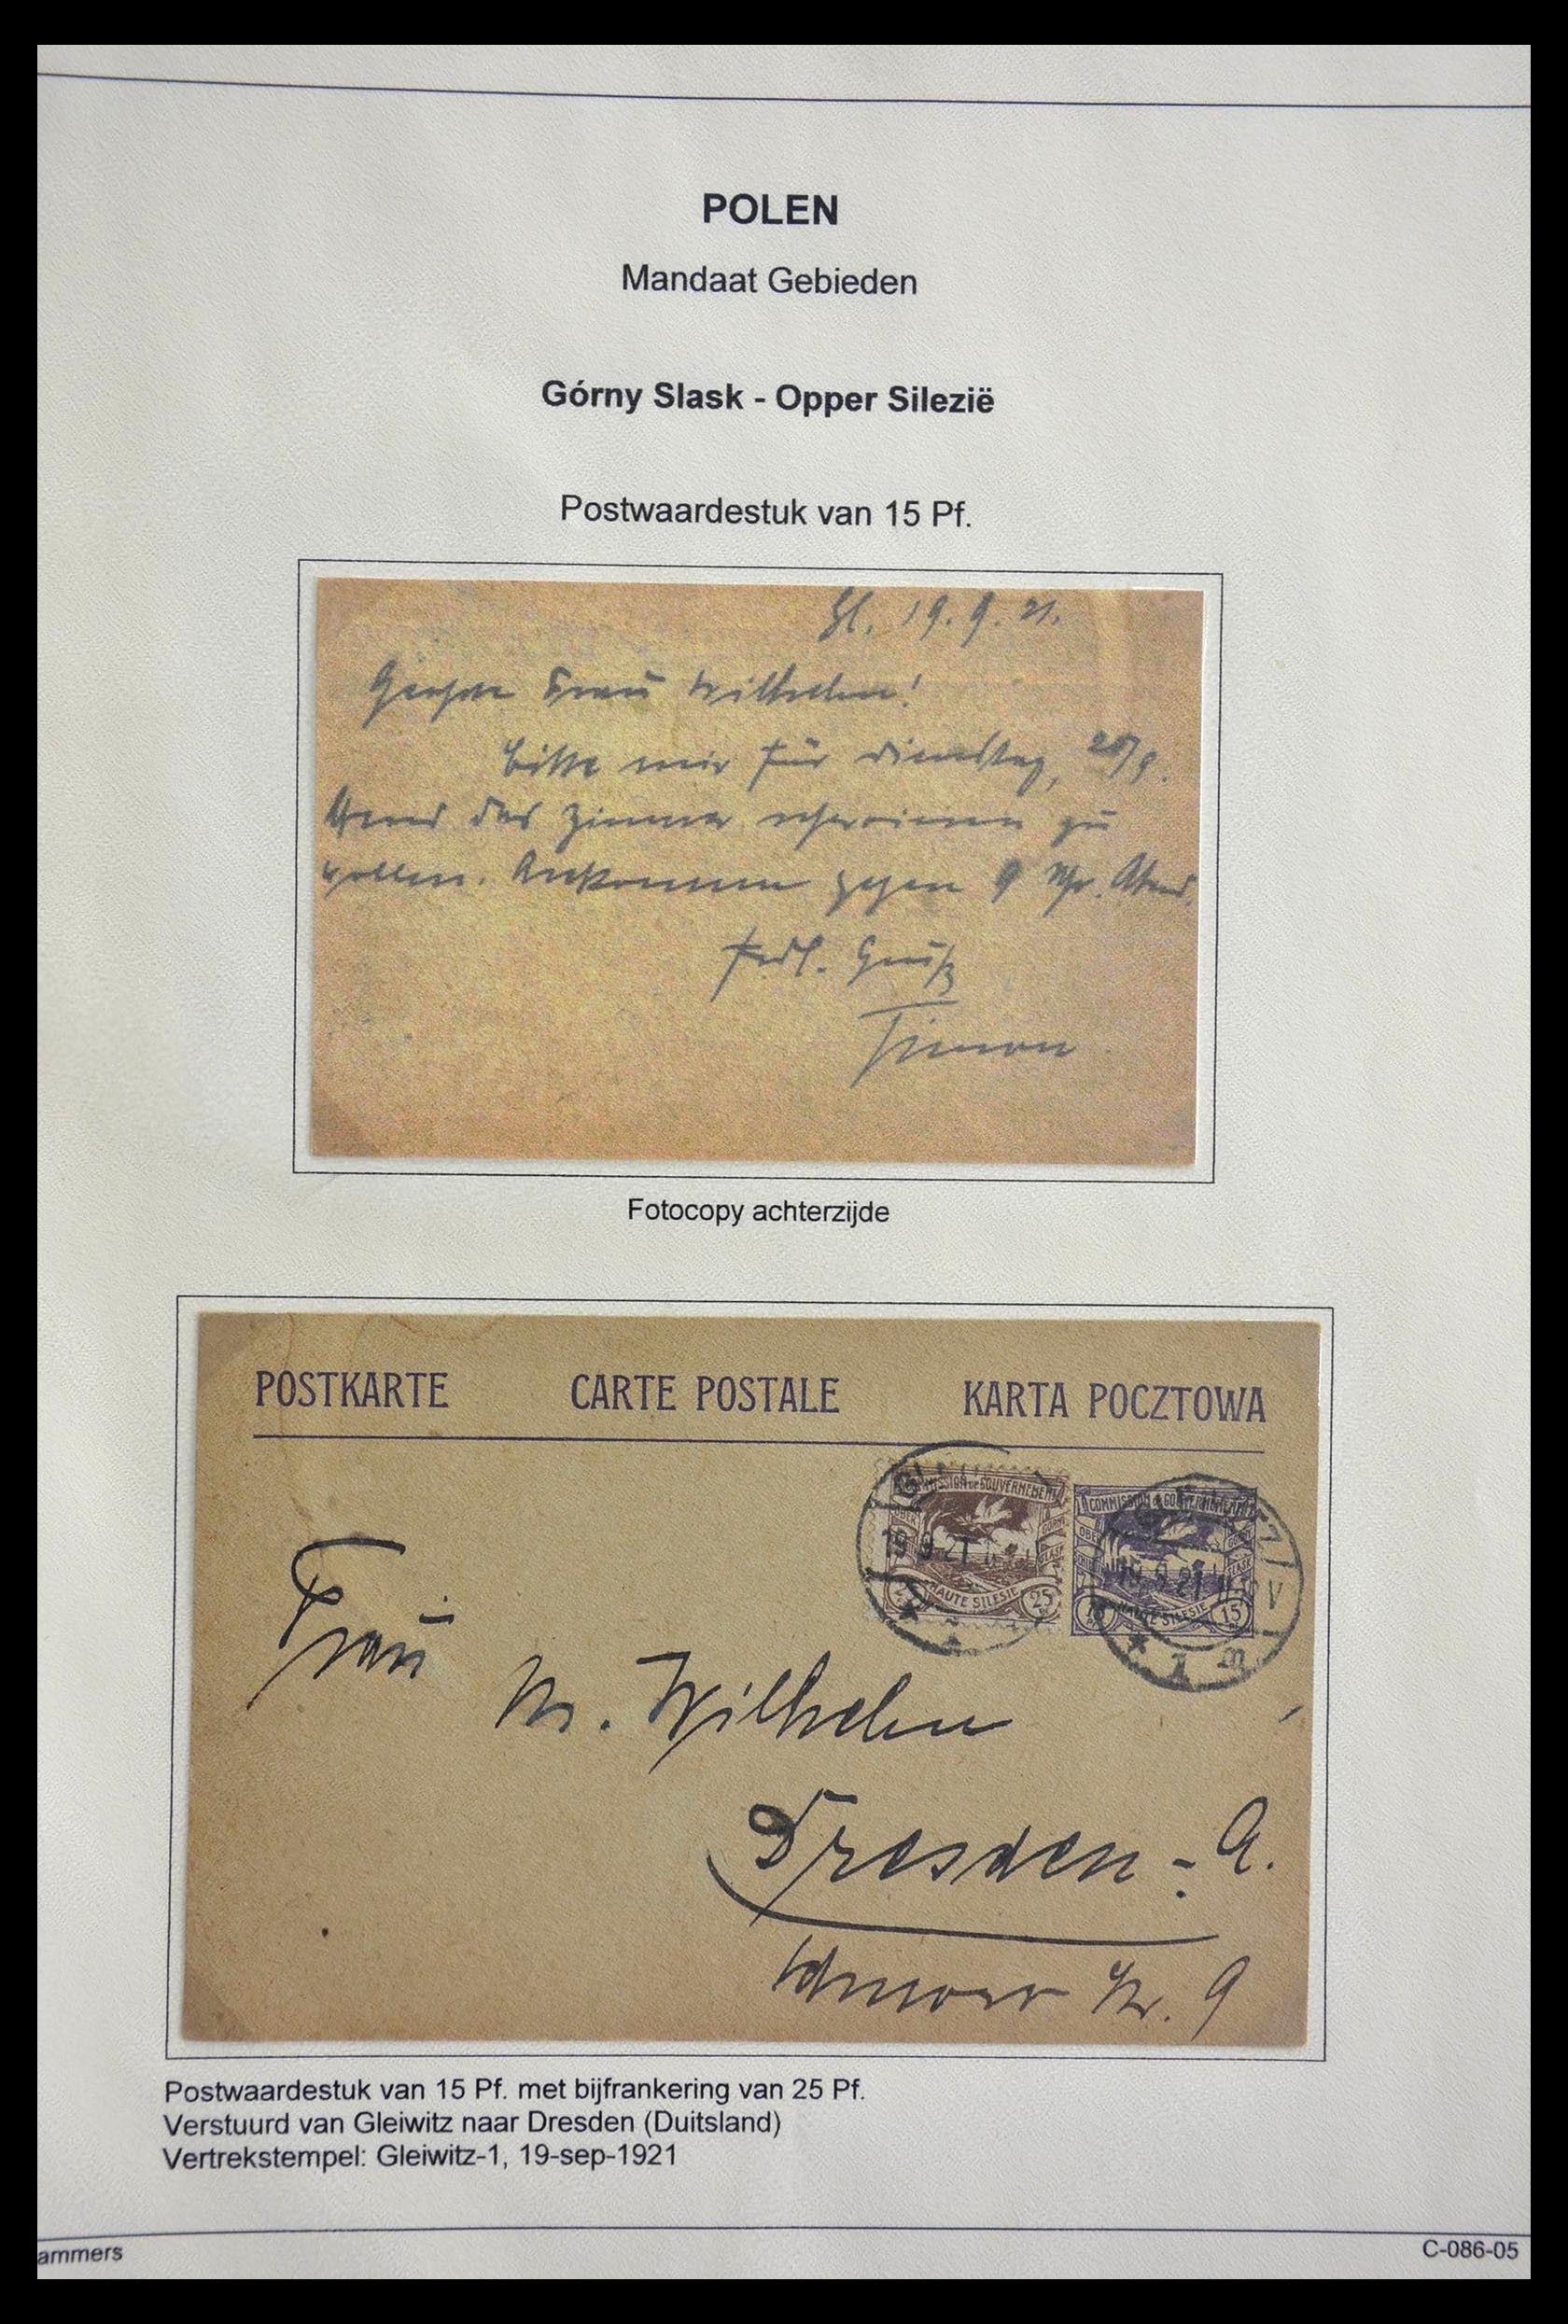 POLEN
Mandaat Gebieden
Górny Slask - Opper Silezië
Postwaardestuk van 15 Pf.
Gl. 19. 9. 21.
Frau Wilhelm!
bitte mir für Dienstag, 20/9.
Abend das Zimmer zu
wollen. Ankommen gegen 9 Uhr Abend.
frdl. Gruß
Simon
Fotocopy achterzijde
POSTKARTE CARTE POSTALE KARTA POCZTOWA
COMMISSION DE GOUVERNEMENT
HAUTE SILESIE
25
19 9 21
COMMISSION DE GOUVERNEMENT
HAUTE SILESIE
15 15
19 9 21 V
* 1 m
Frau
M. Wilhelm
Dresden - A.
9
Postwaardestuk van 15 Pf. met bijfrankering van 25 Pf.
Verstuurd van Gleiwitz naar Dresden (Duitsland)
Vertrekstempel: Gleiwitz-1, 19-sep-1921
ammers
C-086-05